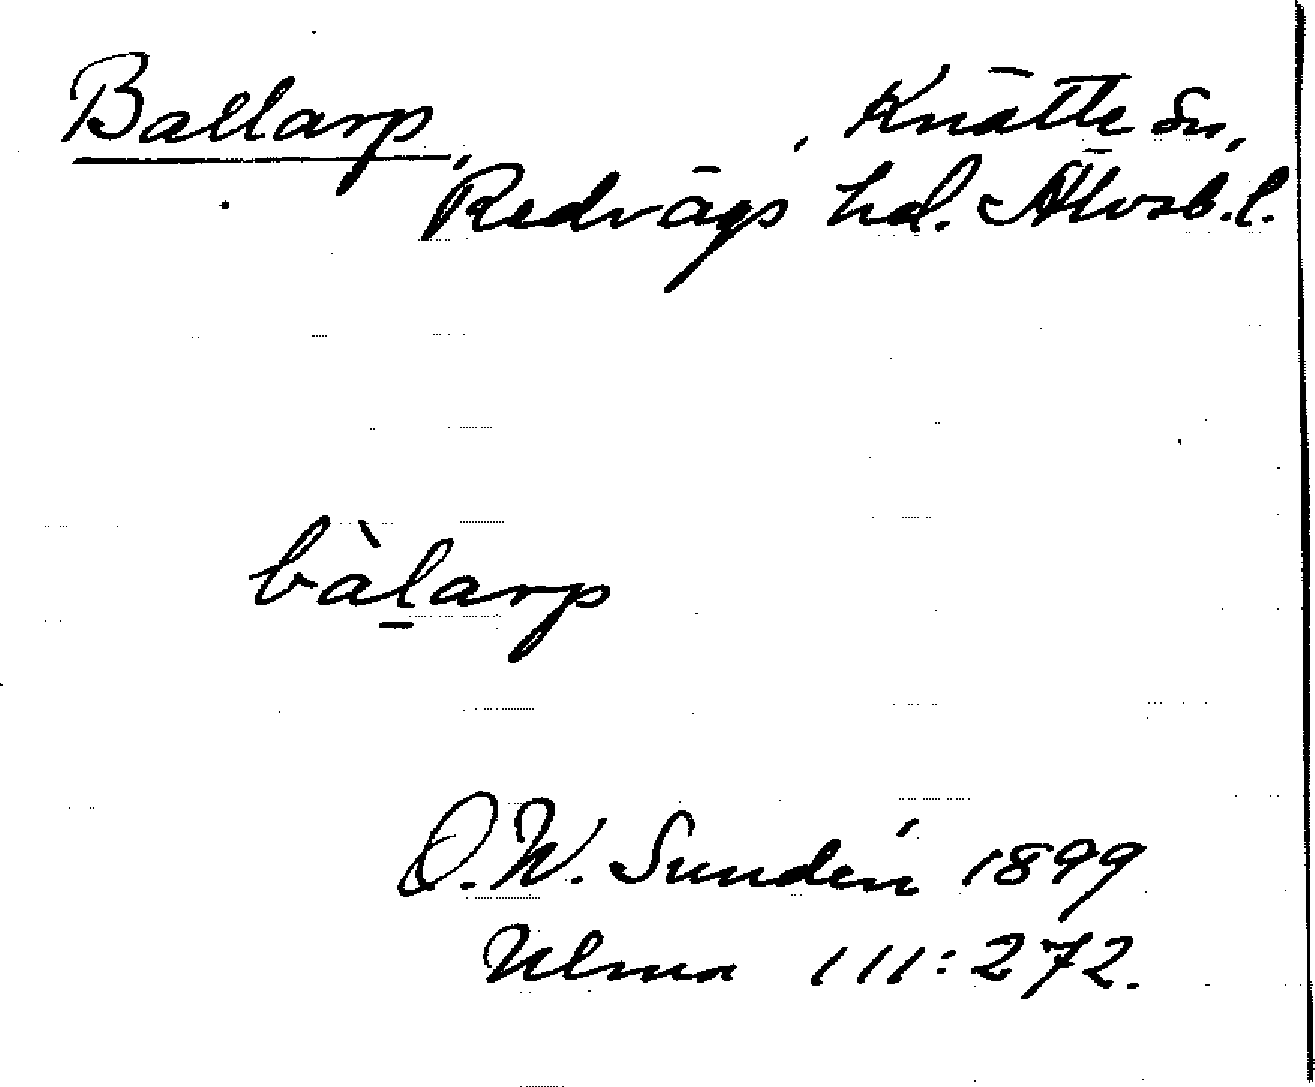 Ballarp, Knätte sn,
Redvägs hd. Älvsb. l.
bàl̠arp
O. W. Sundén 1899
Ulma 111:272.